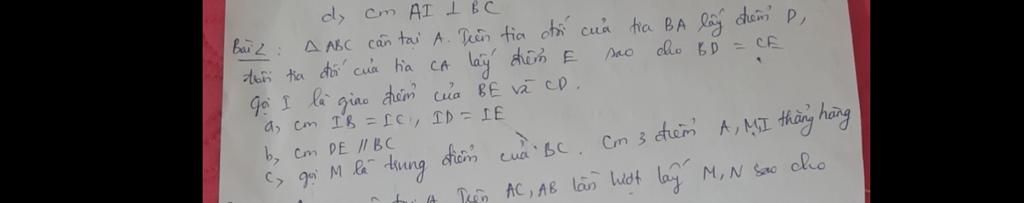 d, cm AI ⊥ BC
Bài 2 : △ ABC cân tại A. Trên tia đối của tia BA lấy điểm D,
trên tia đối của tia CA lấy điểm E sao cho BD = CE
Gọi I là giao điểm của BE và CD.
a, cm IB = IC, ID = IE
b, cm DE // BC
c, gọi M là trung điểm của BC. Cm 3 điểm A, M, I thẳng hàng
tại A. Trên AC, AB lần lượt lấy M, N sao cho